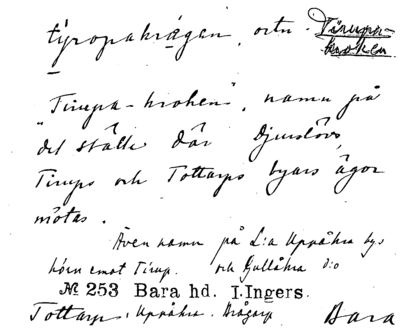 týropakrågen, ortn. Tirupa-
kroken
"Tirupa-kroken", namn på
det ställe där Djurslövs,
Tirups och Tottarps byars ägor
mötas.
Även namn på L:a Uppåkra bys
hörn emot Tirup. och Gullåkra d:o
№ 253 Bara hd. I. Ingers.
Tottarp, Uppåkra, Brågarp Bara